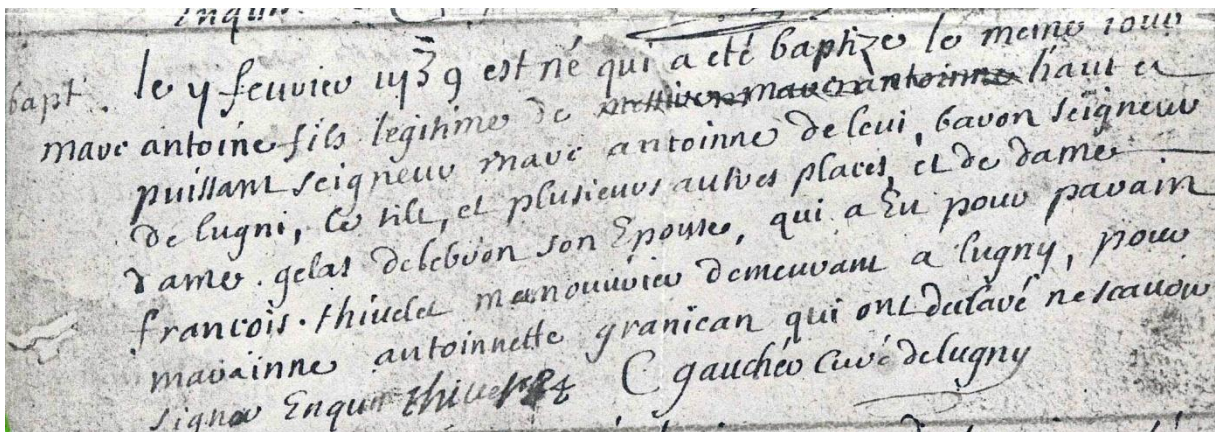 Enquis.
bapt. le 4 feuvier 1739 est né qui a eté baptize le meme iour
marc antoine fils legitime de haut et
puissant seigneur marc antoinne de leui, baron seigneur
de lugni, le til, et plusieurs autres places, et de dame
dame. gelas deleberon son Epouse, qui a Eu pour parain
francois. thiuelet manouurier demeurant a lugny, pour
marainne antoinnette granican qui ont delaré ne scauoir
signer Enquis C gauchér Curé delugny